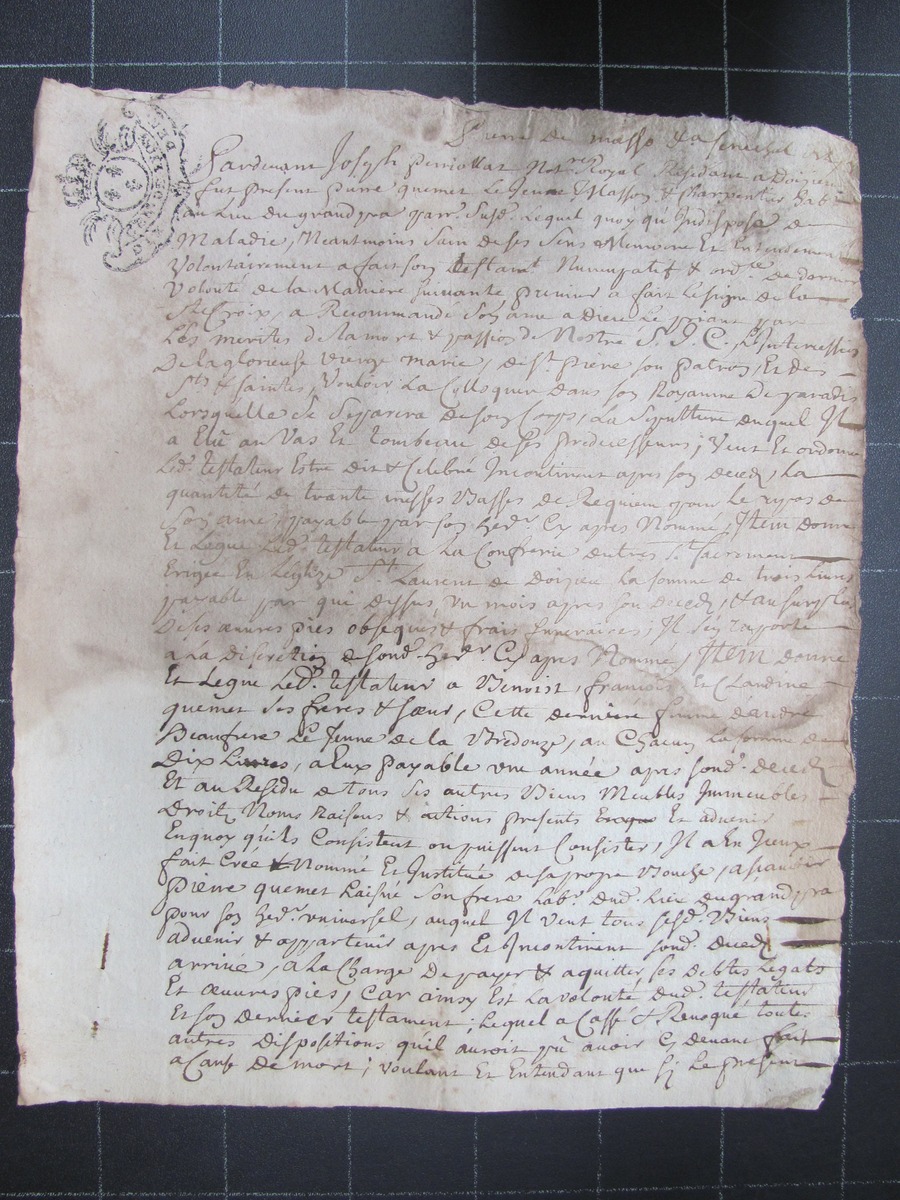 Pardevant Joseph perriollat Not.re Royal Residant a Doizieu
fut present pierre quemet Le jeune Masson & Charpentier hab.
au lieu du grand pra parr. Susd. Lequel quoy qu'Indisposé de
Maladie, Neautmoins Sain de Ses Sens Memoire Et Entendement
Volontairement a fait son testamt Nuncupatif & ord.ce De derniere
Volonté de la Maniere suivante premier a fait le signe de la
Ste Croix, a Recommandé Son ame a dieu Le priant par
Les merites de la mort & passion de Nostre S. J. C. L'Intercession
De la glorieuse vierge marie, de St. pierre son patron, Et des
Sts & Saintes, Vouloir La Colloquer dans son Royaume De paradis
Lorsquelle Se Separera de son Corps, La Sepulture duquel Il
a Elû au Vas Et tombeau de Ses predecesseurs; Veut Et ordonne
Led. testateur Estre dit & Celebré Incontinent apres son decedz, la
quantité de trante messes Basses de Requiem pour le repos de
Son ame, payable par son hed.r Cy apres Nommé, Item donne
Et Legue Led. testateur a La Confrerie du tres St. Sacrement
Erigée En L'eglize St. Laurent de Doizieu la somme de trois Livres
payable par qui dessus, un mois apres son decedz, & au surplus
De Ses œuvres pies obseques & frais funeraires, Il s'en raporte
a la Discretion de sond. hed.r Cy apres Nommé, Item donne
Et Legue Led. testateur a Benoist, francois, Et Claudine
quemet Ses freres & sœur, Cette derniere femme
Beaufrere Le Jeune de la Bredouze, au Chacun la somme de
Dix Livres, a Eux payable une année apres sond. decedz
Et au Residu de tous ses autres Biens Meubles Immeubles
Droitz Noms Raisons & actions presents Et advenir
Enquoy qu'ils Consistent ou puissent Consister, Il a En Iceux
fait Créé & Nommé Et Institué de sa propre Bouche, a sçavoir
pierre quemet L'aisné Son frere Lab.r dud. Lieu du grand pra
pour son hed.r universel, auquel Il veut tous sesd. Biens
advenir & appartenir apres Et Incontinent sond. decedz
arrivé, a la Charge De payer & aquitter ses debtes Legats
Et œuvres pies, Car ainsy Est la volonté dud. testateur
Et son dernier testament, lequel a Cassé & Revoqué toutes
autres Dispositions qu'il auroit pû avoir Cy devant fait
a Cause De mort; voulant Et Entendant que sy Le present